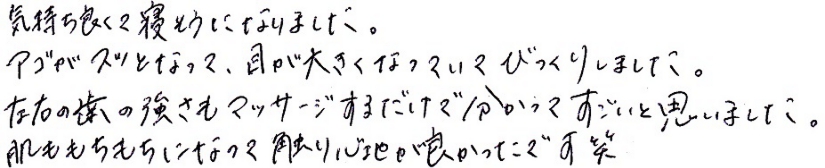 気持ち良くて寝そうになりました。
アゴがスッとなって、目が大きくなっていてびっくりしました。
左右の歯の強さもマッサージするだけで分かってすごいと思いました。
肌ももちもちになって触り心地が良かったです笑